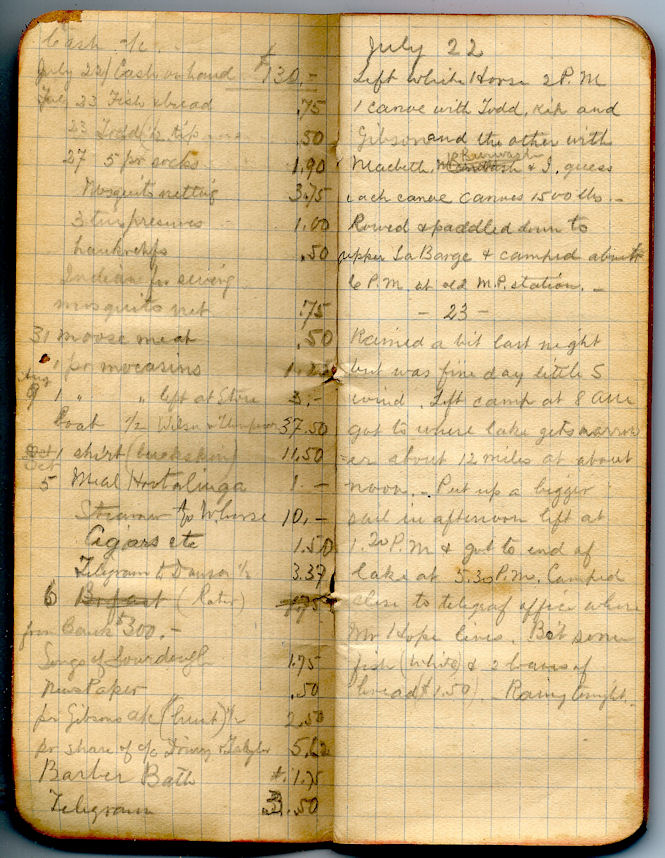 Cash a/c
July 22/ Cash on hand $130.-
July 23 Fish & bread .75
23 Todd ½ tip .50
27 5 pr socks 1.90
Mosquito netting 3.75
3 tur preserves 1.00
hankrchfs .50
Indian for sewing
mosquito net .75
31 moose meat .50
1 pr mocasins
Aug 9 1 " " left at Store 3.-
Boat ½ Wilson & Thompson 37.50
Oct 1 shirt (buckskin) 11.50
5 Meal Hootalinqua 1.-
Steamer to W horse 10.-
Cigars etc 1.50
Telegram to Dawson ½ 3.37
6 Brfast (later) 1.75
from Bank $300.-
Songs of Sourdough 1.75
News Paper .50
pr Gibsons a/c (hunt) ½ 2.50
pr share of a/c 5.62
Barber Bath 1.75
Telegram 3.50
July 22
Left White Horse 2 P.M
1 canoe with Todd, Kip and
Gibson and the other with
Macbeth, & I, guess
each canoe cannoes 1500 lbs. -
Rowed & paddled down to
upper La Barge & camped about
6 P.M. at old M.P. station. -
- 23 -
Rained a bit last night
but was fine day little S
wind. Left camp at 8 AM
got to where lake gets narrow
-er about 12 miles at about
noon. - Put up a bigger
sail in afternoon left at
1.20 P.M & got to end of
lake at 5.30 P.M. Camped
close to telegraf office where
Mr Hope lives. Bot some
fish (white) & 2 loaves of
bread ($1.50). - Rainy tonight.